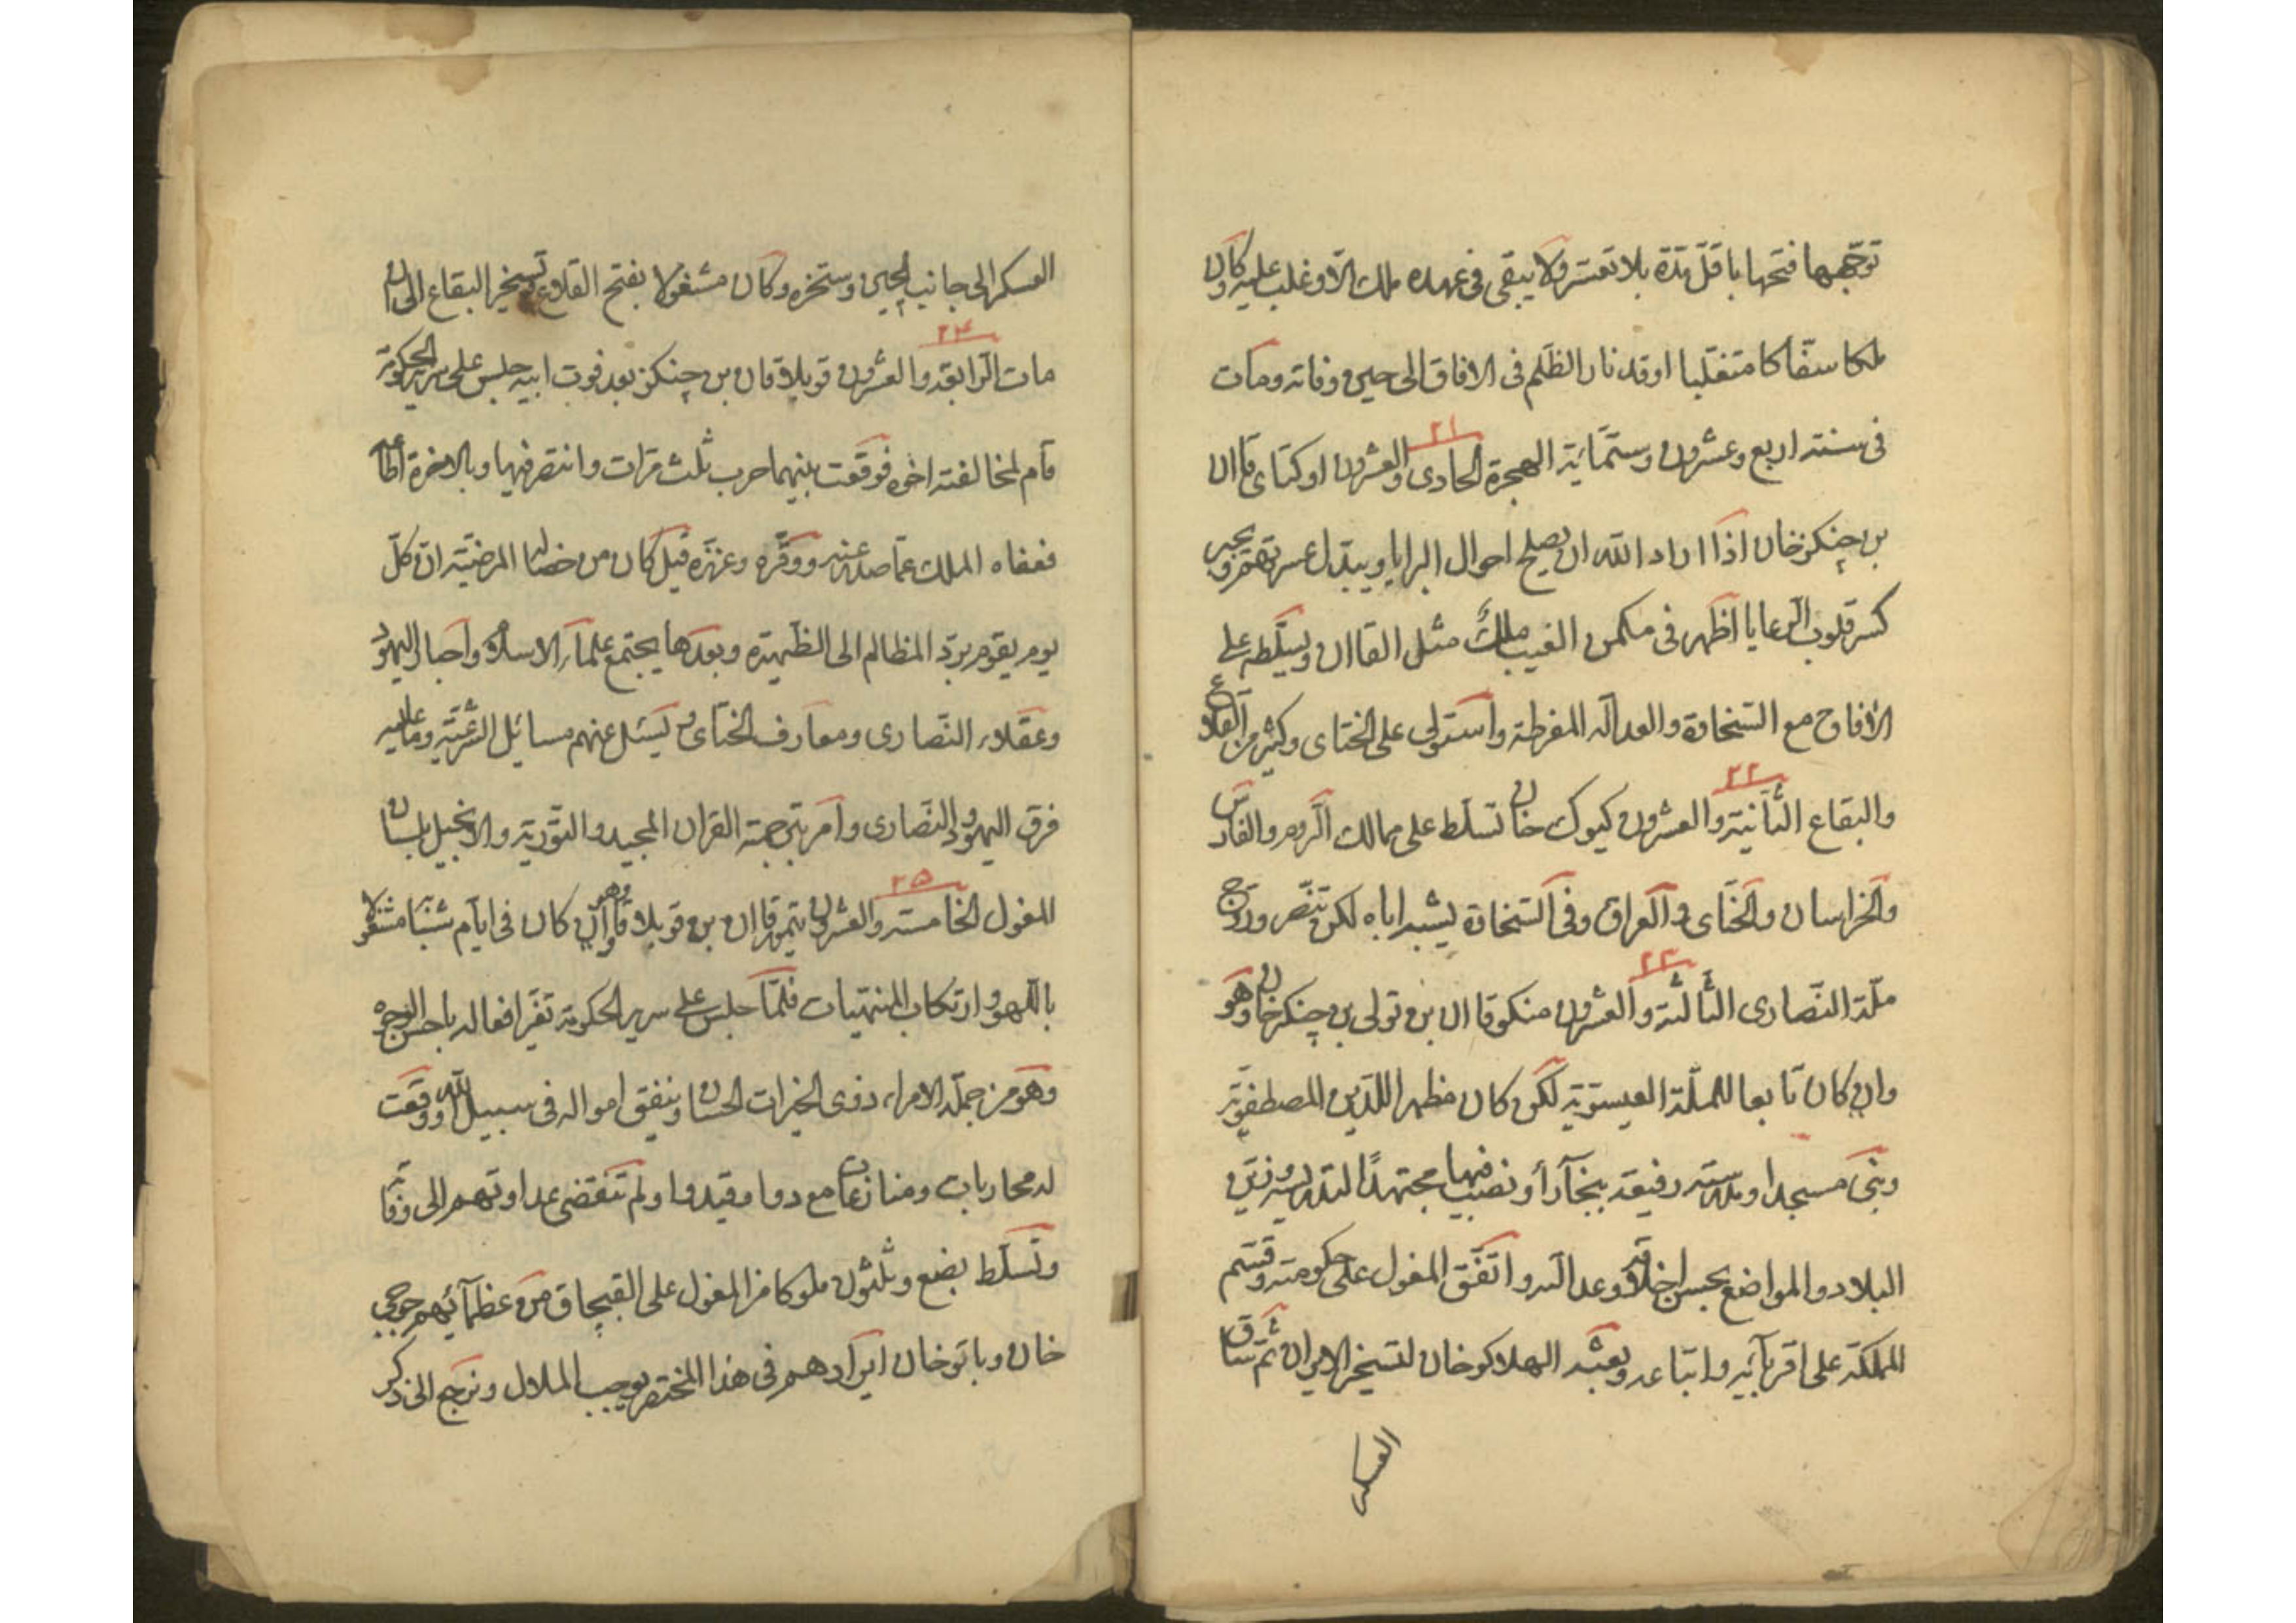 توجهها فتحها باقل مدة بلا تعسر ولا يبقى فى عهده ملك الا وغلب عليه وكان
ملكا سفاكا متغلبا اوقد نار الظلم فى الافاق الى حين وفاته ومات
فى سنة اربع وعشرون وستمائة الهجرة الحادى والعشرون اوكتاى قاان
۲۱
بن چنكز خان اذا اراد الله ان يصلح احوال البرايا ويبدل عسرتهم ويجبر
كسر قلوب الرعايا اظهر فى مكمن الغيب ملك مثل القاان وسلطه على
الافاق مع السخاوة والعدالة المفرطة واستولى على الختاى وكثير من القلاع
والبقاع الثانية والعشرون كيوك خان تسلط على ممالك الروم والفارس
۲۲
والخراسان والختاى والعراق وفى السخاوة يشبه اباه لكن تنصر وروج
ملة النصارى الثالثة والعشرون منكو قاان بن تولى بن چنكز خان وهو
۲۳
وان كان تابعا للملة العيسوية لكن كان مظهرا للدين المصطفوية
وبنى مسجدا ومدرسة رفيعة ببخارا ونصب فيها مجتهدا لتدريسه وزين
البلاد والمواضع بحسن اخلاقه وعدالته واتفق المغول على حكومته وقسم
المملكة على اقربائه واتباعه وبعثه الهلاكو خان لتسخير الايران ثم ساق
العسكر
العسكر الى جانب الچين وسخره وكان مشغولا بفتح القلاع وتسخير البقاع الى ان
مات الرابعة والعشرون قوبلاقاان بن چنكز بعد فوت ابيه جلس على سرير الحكومة
۲۴
قام لمخالفته اخوه فوقعت بينهما حرب ثلث مرات وانتصر فيها وبالاخرة اطاعه
فعفاه الملك عما صدر عنه ووقره وعززه قيل كان من خصاله المرضية ان كل
يوم يقوم برد المظالم الى الظهيرة وبعدها يجتمع علماء الاسلام واحبار اليهود
وعقلاء النصارى ومعارف الختاى ويسئل عنهم مسائل الشرعية وما عليه
فرق اليهود والنصارى وامر بترجمة القران المجيد والتورية والانجيل بلسان
المغول الخامسة والعشرون تيمور قاان بن قوبلا قاان وهو وان كان فى ايام شبابه مشغولا
۲۵
باللهو وارتكاب المنهيات فلما جلس على سرير الحكومة تغير افعاله باحسن الوجوه
وهو من جملة الامراء ذوى الخيرات الحسان وينفق امواله فى سبيل الله ووقعت
له محاربات ومنازعات مع دوا وقيدوا ولم تنقضى عداوتهم الى وفاته
وتسلط بضع وثلثون ملوكا من المغول على القبچاق من عظمائهم جوجى
خان وباتو خان ايرادهم فى هذا المختصر يوجب الملال ونرجع الى ذكر